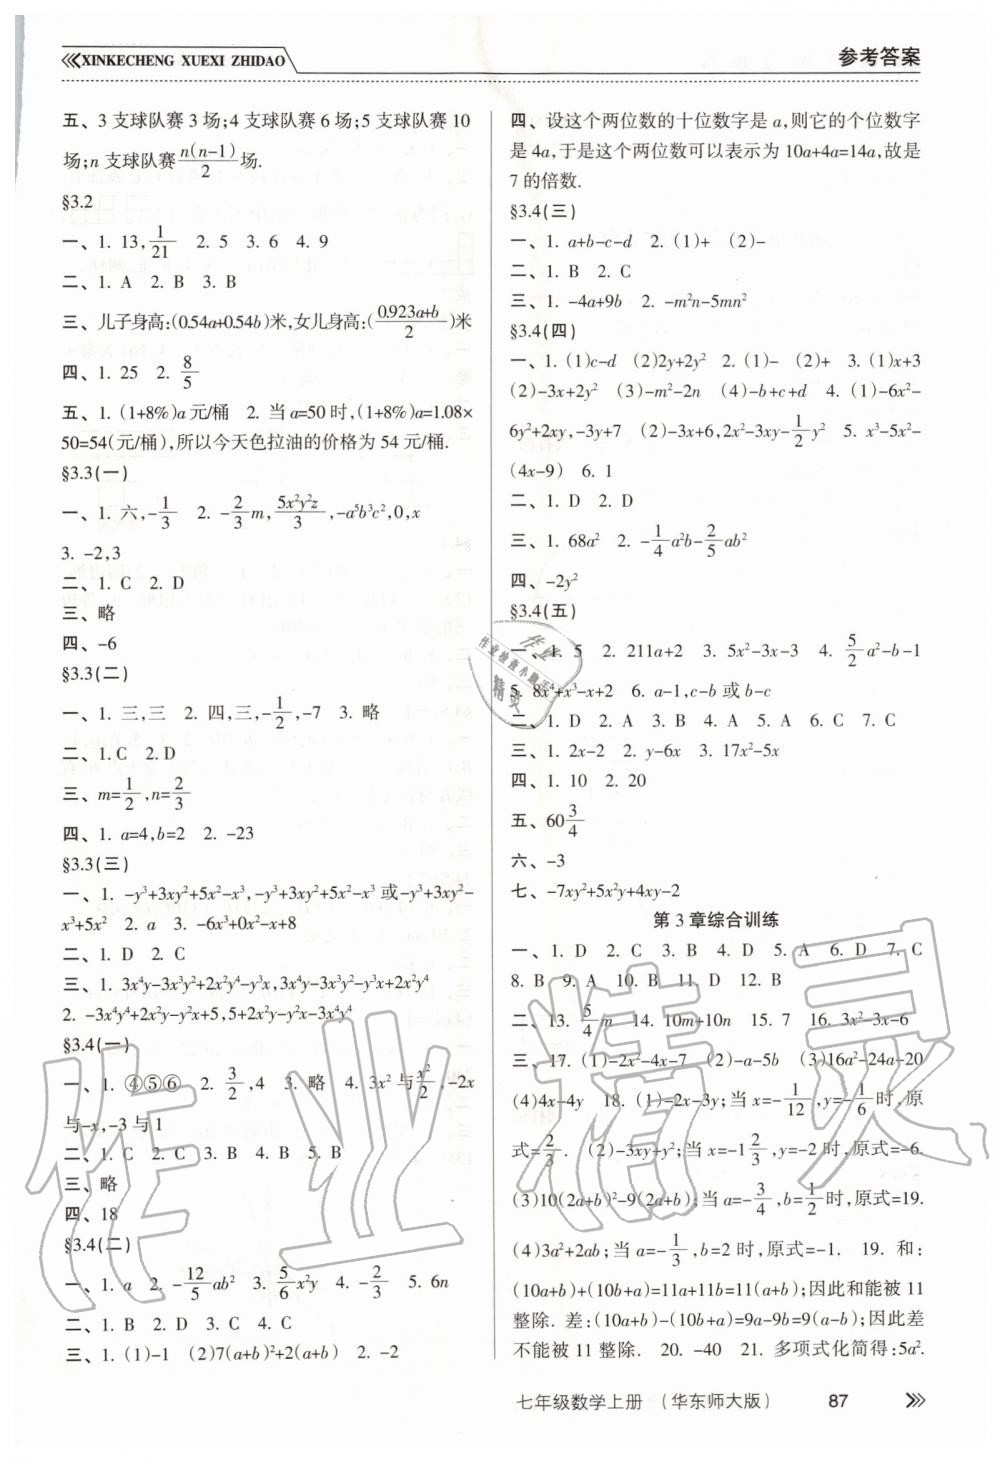 XINKECHENG XUEXI ZHIDAO
参考答案
五、3 支球队赛 3 场;4 支球队赛 6 场;5 支球队赛 10
场;n 支球队赛 n(n-1)/2 场.
§3.2
一、1. 13,1/21 2. 5 3. 6 4. 9
二、1. A 2. B 3. B
三、儿子身高:(0.54a+0.54b)米,女儿身高:(0.923a+b/2)米
四、1. 25 2. 8/5
五、1. (1+8%)a 元/桶 2. 当 a=50 时,(1+8%)a=1.08×
50=54(元/桶),所以今天色拉油的价格为 54 元/桶.
§3.3(一)
一、1. 六,-1/3 2. -2/3m,5x²y²z/3,-a⁵b³c²,0,x
3. -2,3
二、1. C 2. D
三、略
四、-6
§3.3(二)
一、1. 三,三 2. 四,三,-1/2,-7 3. 略
二、1.C 2.D
三、m=1/2,n=2/3
四、1. a=4,b=2 2. -23
§3.3(三)
一、1. -y³+3xy²+5x²-x³,-y³+3xy²+5x²-x³ 或 -y³+3xy²-
x³+5x² 2. a 3. -6x³+0x²-x+8
二、1. D 2. C
三、1. 3x⁴y-3x³y²+2x²y⁴-y³x,3x⁴y-3x³y²-y³x+2x²y⁴
2. -3x⁴y⁴+2x²y-y²x+5,5+2x²y-y²x-3x⁴y⁴
§3.4(一)
一、1. ④⑤⑥ 2. 3/2,4 3. 略 4. 3x² 与 x²/2,-2x
与-x,-3 与 1
二、1. C 2. C 3. B 4. B 5. B
三、略
四、18
§3.4(二)
一、1. a 2. -12/5ab² 3. 5/6x²y 4. -2/3 5. 6n
二、1. B 2. D 3. C 4. C
三、1. (1)-1 (2)7(a+b)²+2(a+b) 2. -2
四、设这个两位数的十位数字是 a,则它的个位数字
是 4a,于是这个两位数可以表示为 10a+4a=14a,故是
7 的倍数.
§3.4(三)
一、1. a+b-c-d 2. (1)+ (2)-
二、1. B 2. C
三、1. -4a+9b 2. -m²n-5mn²
§3.4(四)
一、1. (1)c-d (2)2y+2y² 2. (1)- (2)+ 3. (1)x+3
(2)-3x+2y² (3)-m²-2n (4)-b+c+d 4. (1)-6x²-
6y²+2xy,-3y+7 (2)-3x+6,2x²-3xy-1/2y² 5. x³-5x²-
(4x-9) 6. 1
二、1. D 2. D
三、1. 68a² 2. -1/4a²b-2/5ab²
四、-2y²
§3.4(五)
一、1. 5 2. 211a+2 3. 5x²-3x-3 4. 5/2a²-b-1
5. 8x⁴+x³-x+2 6. a-1,c-b 或 b-c
二、1. D 2. A 3. B 4. A 5. A 6. C 7. C
三、1. 2x-2 2. y-6x 3. 17x²-5x
四、1. 10 2. 20
五、60 3/4
六、-3
七、-7xy²+5x²y+4xy-2
第 3 章综合训练
一、1. D 2. C 3. B 4. D 5. A 6. D 7. C
8. B 9. A 10. B 11. D 12. B
二、13. 5/4m 14. 10m+10n 15. 7 16. 3x²-3x-6
三、17. (1)-2x²-4x-7 (2)-a-5b (3)16a²-24a-20
(4)4x-4y 18. (1)-2x-3y;当 x=-1/12,y=-1/6时,原
式=2/3. (2)-3xy+y²;当 x=-1 2/3,y=-2 时,原式=-6.
(3)10(2a+b)²-9(2a+b);当 a=-3/4,b=1/2时,原式=19.
(4)3a²+2ab;当 a=-1/3,b=2 时,原式=-1. 19. 和:
(10a+b)+(10b+a)=11a+11b=11(a+b);因此和能被 11
整除. 差:(10a+b)-(10b+a)=9a-9b=9(a-b);因此差
不能被 11 整除. 20. -40 21. 多项式化简得:5a².
七年级数学上册 (华东师大版) 87
作业精灵
作业
作业检查小助手
精灵